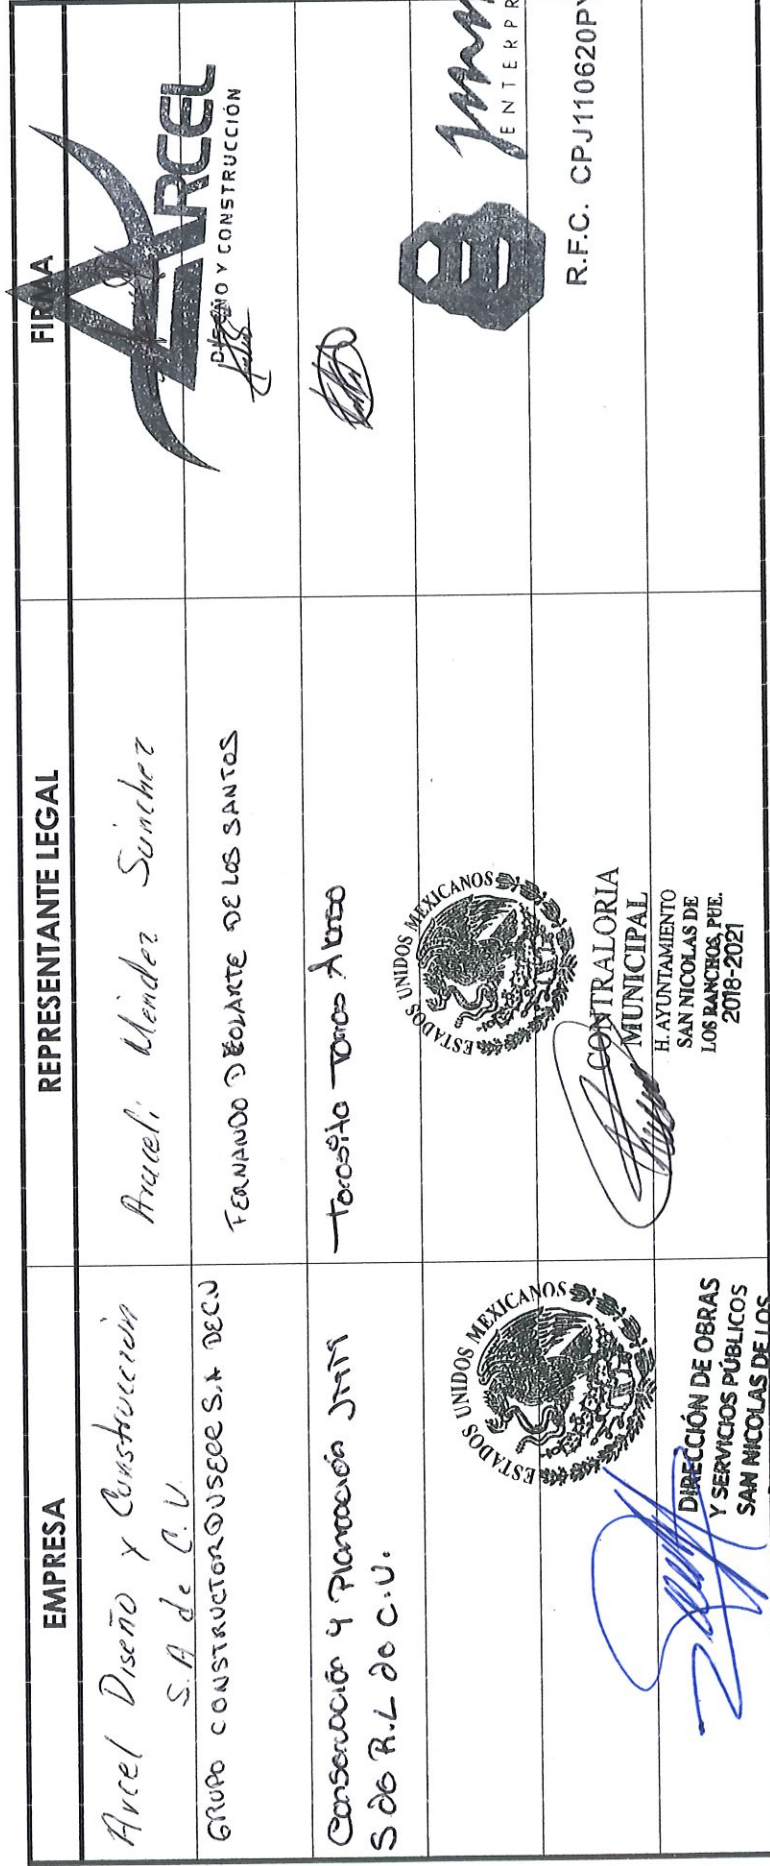 EMPRESA REPRESENTANTE LEGAL FIRMA
Arcel Diseño y Construcción
S.A de C.V.
Araceli Méndez Sánchez
ARCEL
DISEÑO Y CONSTRUCCIÓN
GRUPO CONSTRUCTOR S.A DE C.V
FERNANDO DE LOS SANTOS
Conservación y Planeación JMM
S de R.L de C.V.
Toros
ESTADOS UNIDOS MEXICANOS
DIRECCIÓN DE OBRAS
Y SERVICIOS PÚBLICOS
SAN NICOLAS DE LOS
ESTADOS UNIDOS MEXICANOS
CONTRALORIA
MUNICIPAL
H. AYUNTAMIENTO
SAN NICOLAS DE
LOS RANCHOS, PUE.
2018-2021
R.F.C. CPJ110620PY